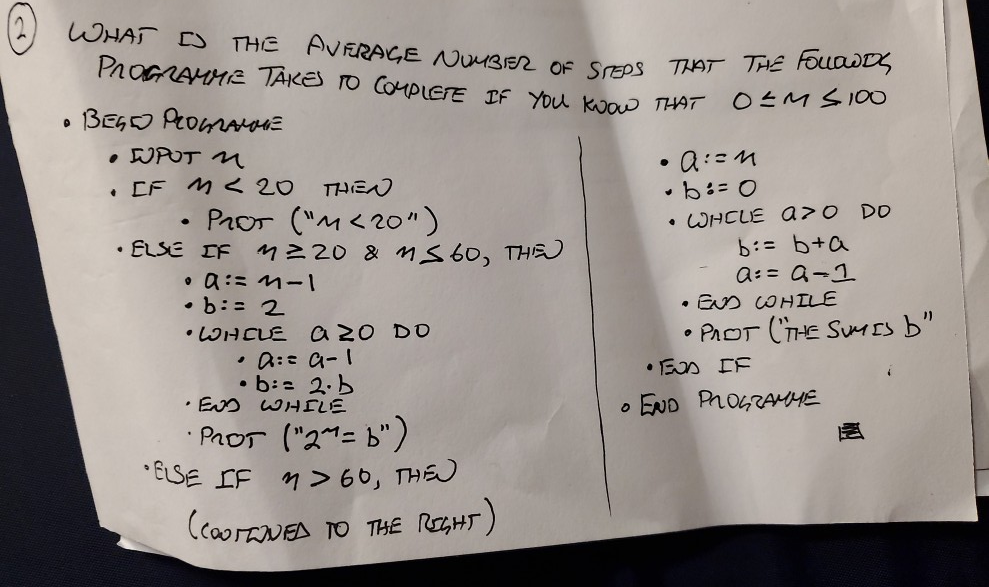 2
WHAT IS THE AVERAGE NUMBER OF STEPS THAT THE FOLLOWING
PROGRAMME TAKES TO COMPLETE IF YOU KNOW THAT 0 ≤ n ≤ 100
• BEGIN PROGRAMME
• INPUT n
• IF n < 20 THEN
• PRINT ("n < 20")
• ELSE IF n ≥ 20 & n ≤ 60, THEN
• a := n-1
• b := 2
• WHILE a ≥ 0 DO
• a := a-1
• b := 2·b
• END WHILE
• PRINT ("2^n = b")
• ELSE IF n > 60, THEN
(CONTINUED TO THE RIGHT)
• a := n
• b := 0
• WHILE a > 0 DO
b := b+a
a := a-1
• END WHILE
• PRINT ("THE SUM IS b"
• END IF
• END PROGRAMME